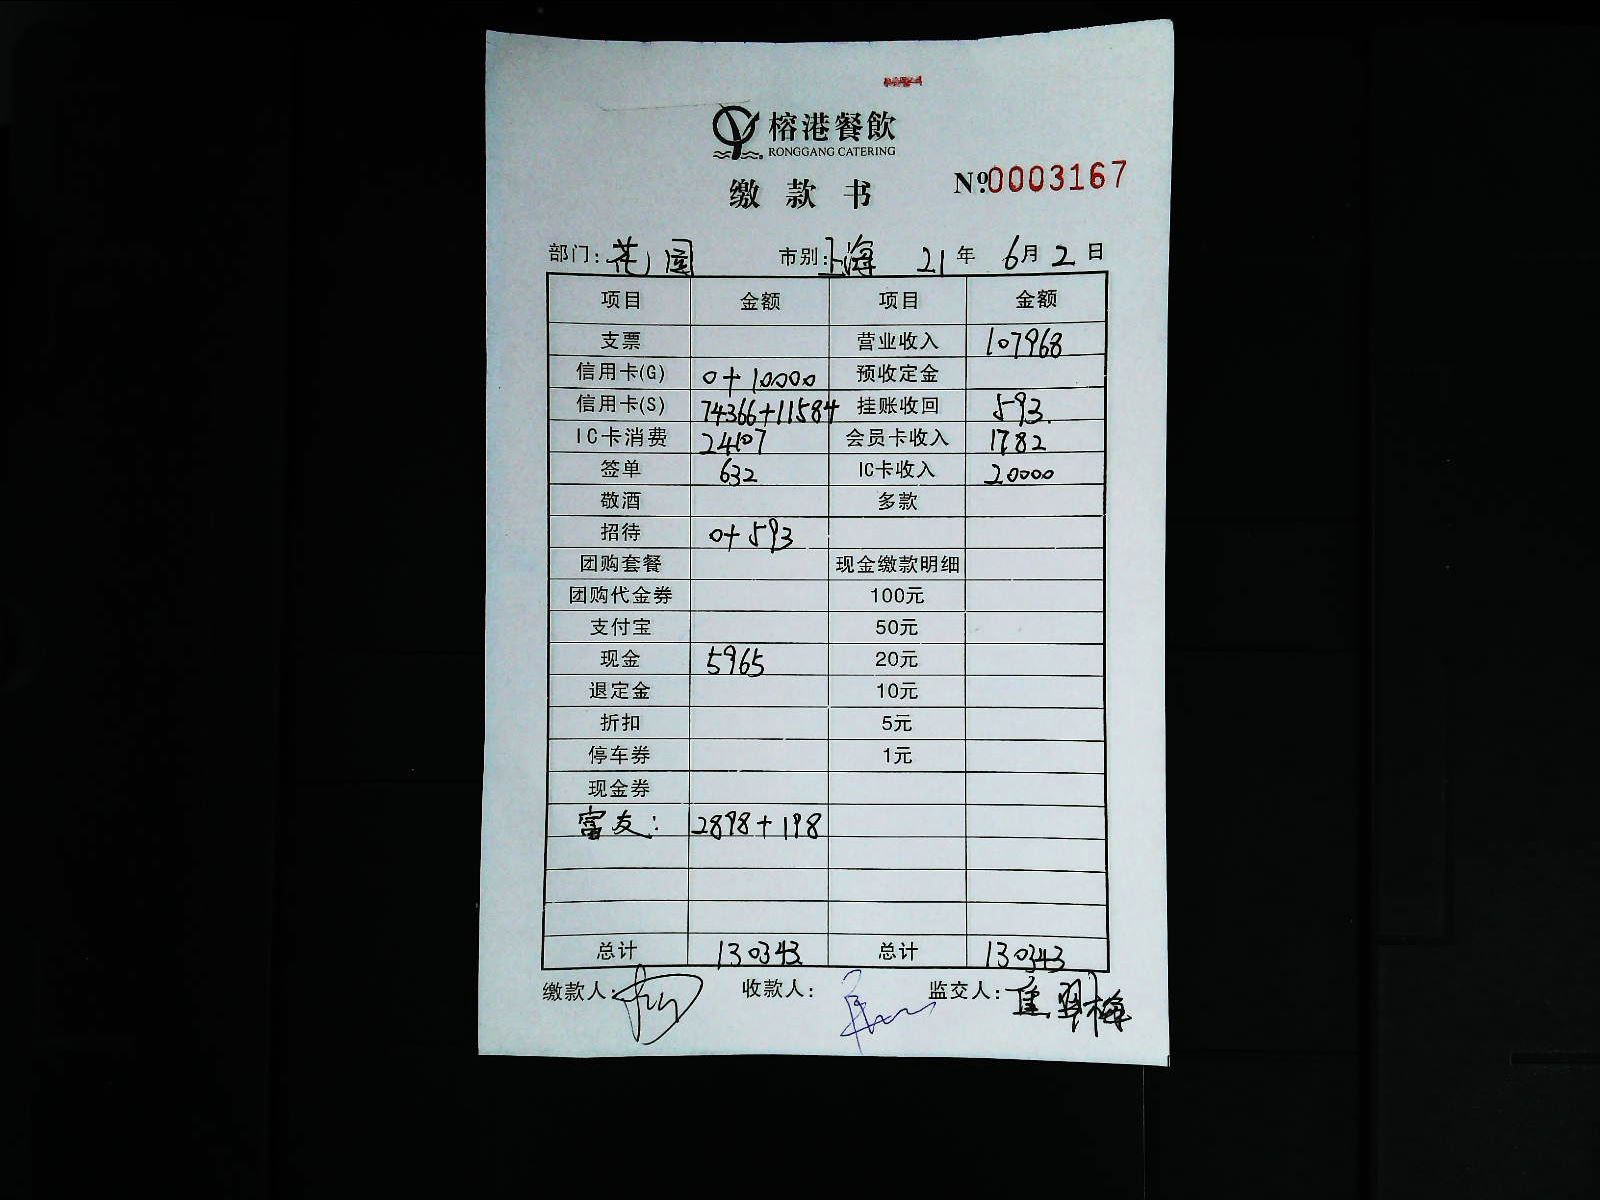 榕港餐飲
RONGGANG CATERING
缴款书 №0003167
部门：花园 市别：上海 21年6月2日
项目 金额 项目 金额
支票 营业收入 107968
信用卡(G) 0+10000 预收定金
信用卡(S) 74366+11584 挂账收回 593
IC卡消费 24107 会员卡收入 1782
签单 632 IC卡收入 20000
敬酒 多款
招待 0+593
团购套餐 现金缴款明细
团购代金券 100元
支付宝 50元
现金 5965 20元
退定金 10元
折扣 5元
停车券 1元
现金券
富友： 2898+198
总计 130343 总计 130343
缴款人： 收款人： 监交人：